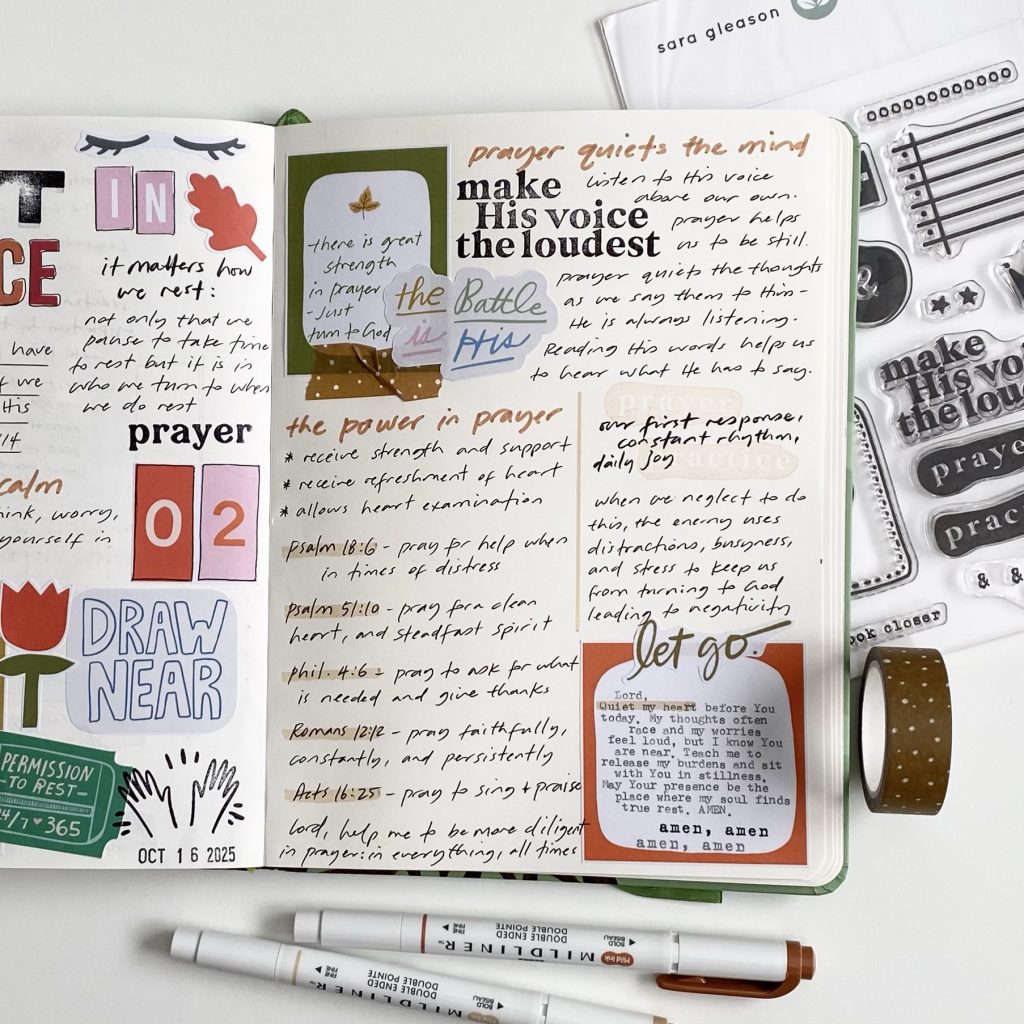 sara gleason
T IN
CE
it matters how
we rest:
not only that we
pause to take time
to rest but it is in
who we turn to when
we do rest
have
we
His
14
prayer
02
calm
think, worry,
yourself in
DRAW
NEAR
PERMISSION
-TO REST-
24/7 ♥ 365
OCT 16 2025
there is great
strength
in prayer
- just
turn to God
the Battle
is His
prayer quiets the mind
make
His voice
the loudest
listen to His voice
above our own.
prayer helps
us to be still.
prayer quiets the thoughts
as we say them to Him-
He is always listening.
Reading His words helps us
to hear what He has to say.
the power in prayer
* receive strength and support
* receive refreshment of heart
* allows heart examination
Psalm 18:6 - pray for help when
in times of distress
Psalm 51:10 - pray for a clean
heart, and steadfast spirit
Phil. 4:6 - pray to ask for what
is needed and give thanks
Romans 12:12 - pray faithfully,
constantly, and persistently
Acts 16:25 - pray to sing + praise
Lord, help me to be more diligent
in prayer: in everything, all times
prayer
our first response,
constant rhythm,
daily joy
practice
when we neglect to do
this, the enemy uses
distractions, busyness,
and stress to keep us
from turning to God
leading to negativity
let go.
Lord,
Quiet my heart before You
today. My thoughts often
race and my worries
feel loud, but I know You
are near. Teach me to
release my burdens and sit
with You in stillness.
May Your presence be the
place where my soul finds
true rest. AMEN.
amen, amen
amen, amen
&
make
His vo
the lou
praye
prac
& &
ook closer
MILDLINER™
DOUBLE ENDED
DOUBLE POINTE
FINE
FINE
BOLD
BISEAU
Mild Ink
MILDLINER
DOUBLE ENDED
DOUBLE POINTE
FINE
FINE
BOLD
BISEAU